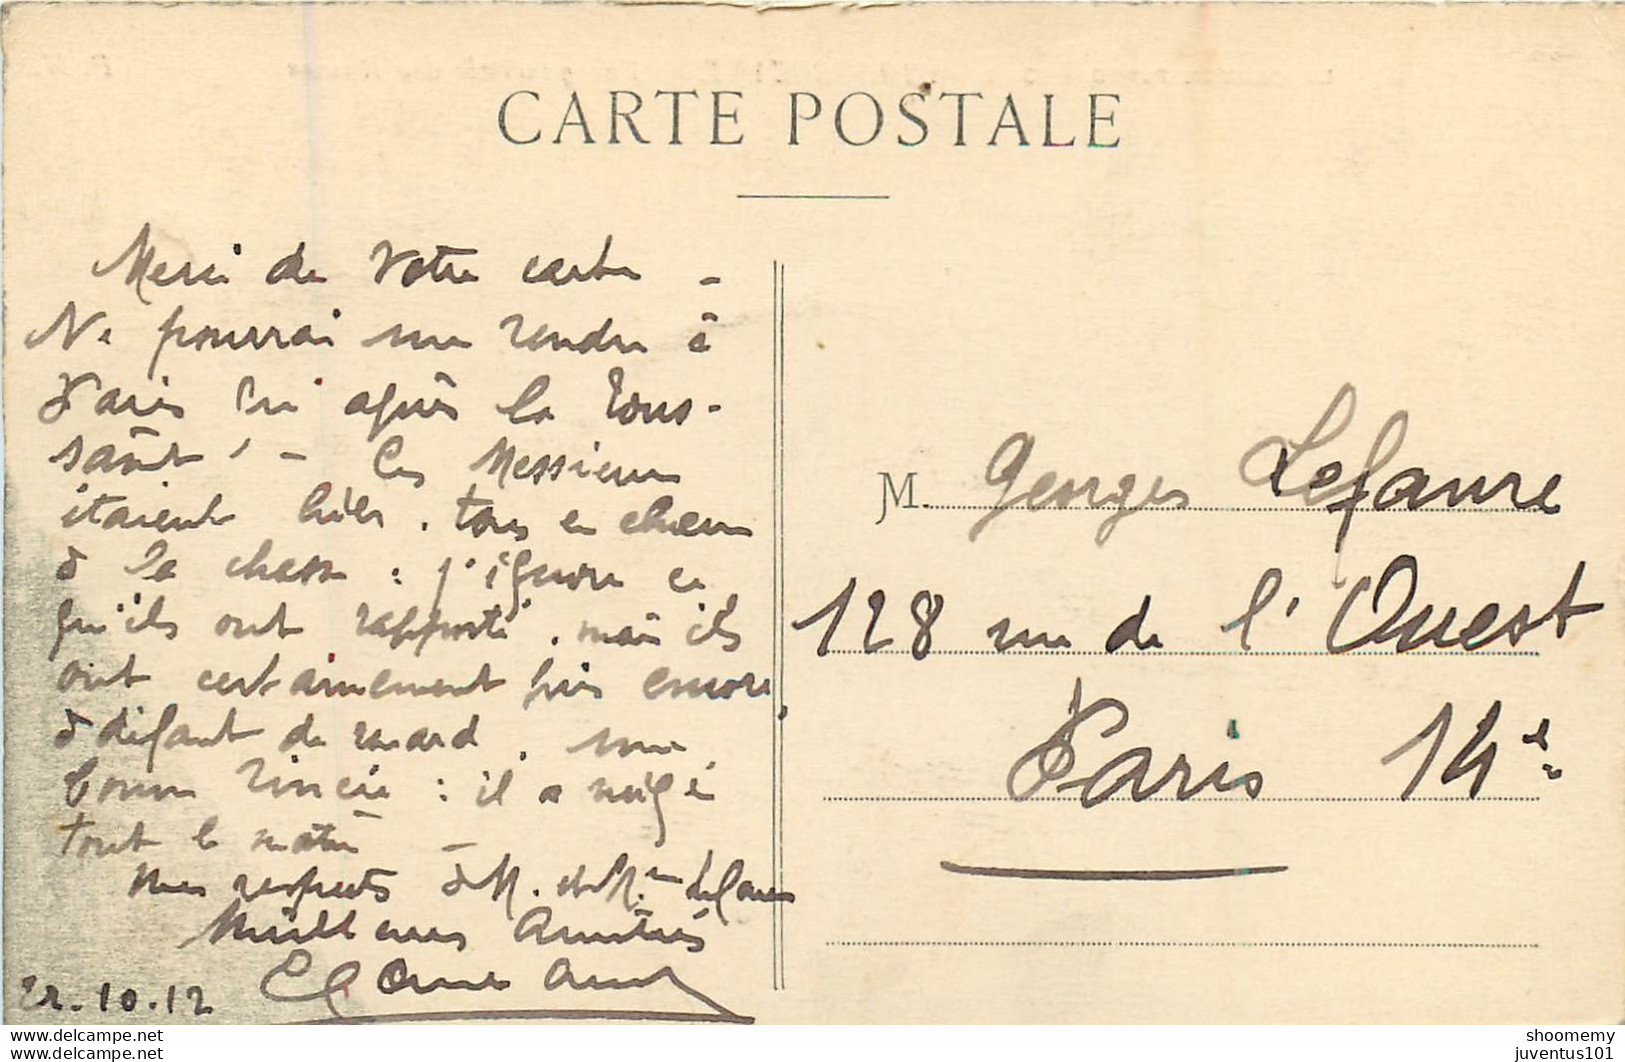 CARTE POSTALE
Merci de votre carte -
Ne pourrai me rendre à
Paris qu'après la Tous-
saint ! - Ces Messieurs
étaient hier, tous en chœur
à la chasse : j'ignore ce
qu'ils ont rapporté, mais ils
ont certainement pris encore,
à défaut de renard, une
bonne rincée : il a neigé
tout le matin -
Mes respects à M. et Mme Lefaure
Meilleures Amitiés
22.10.12
M. Georges Lefaure
128 rue de l'Ouest
Paris 14e
shoomemy
juventus101
http://www.delcampe.net
http://www.delcampe.net